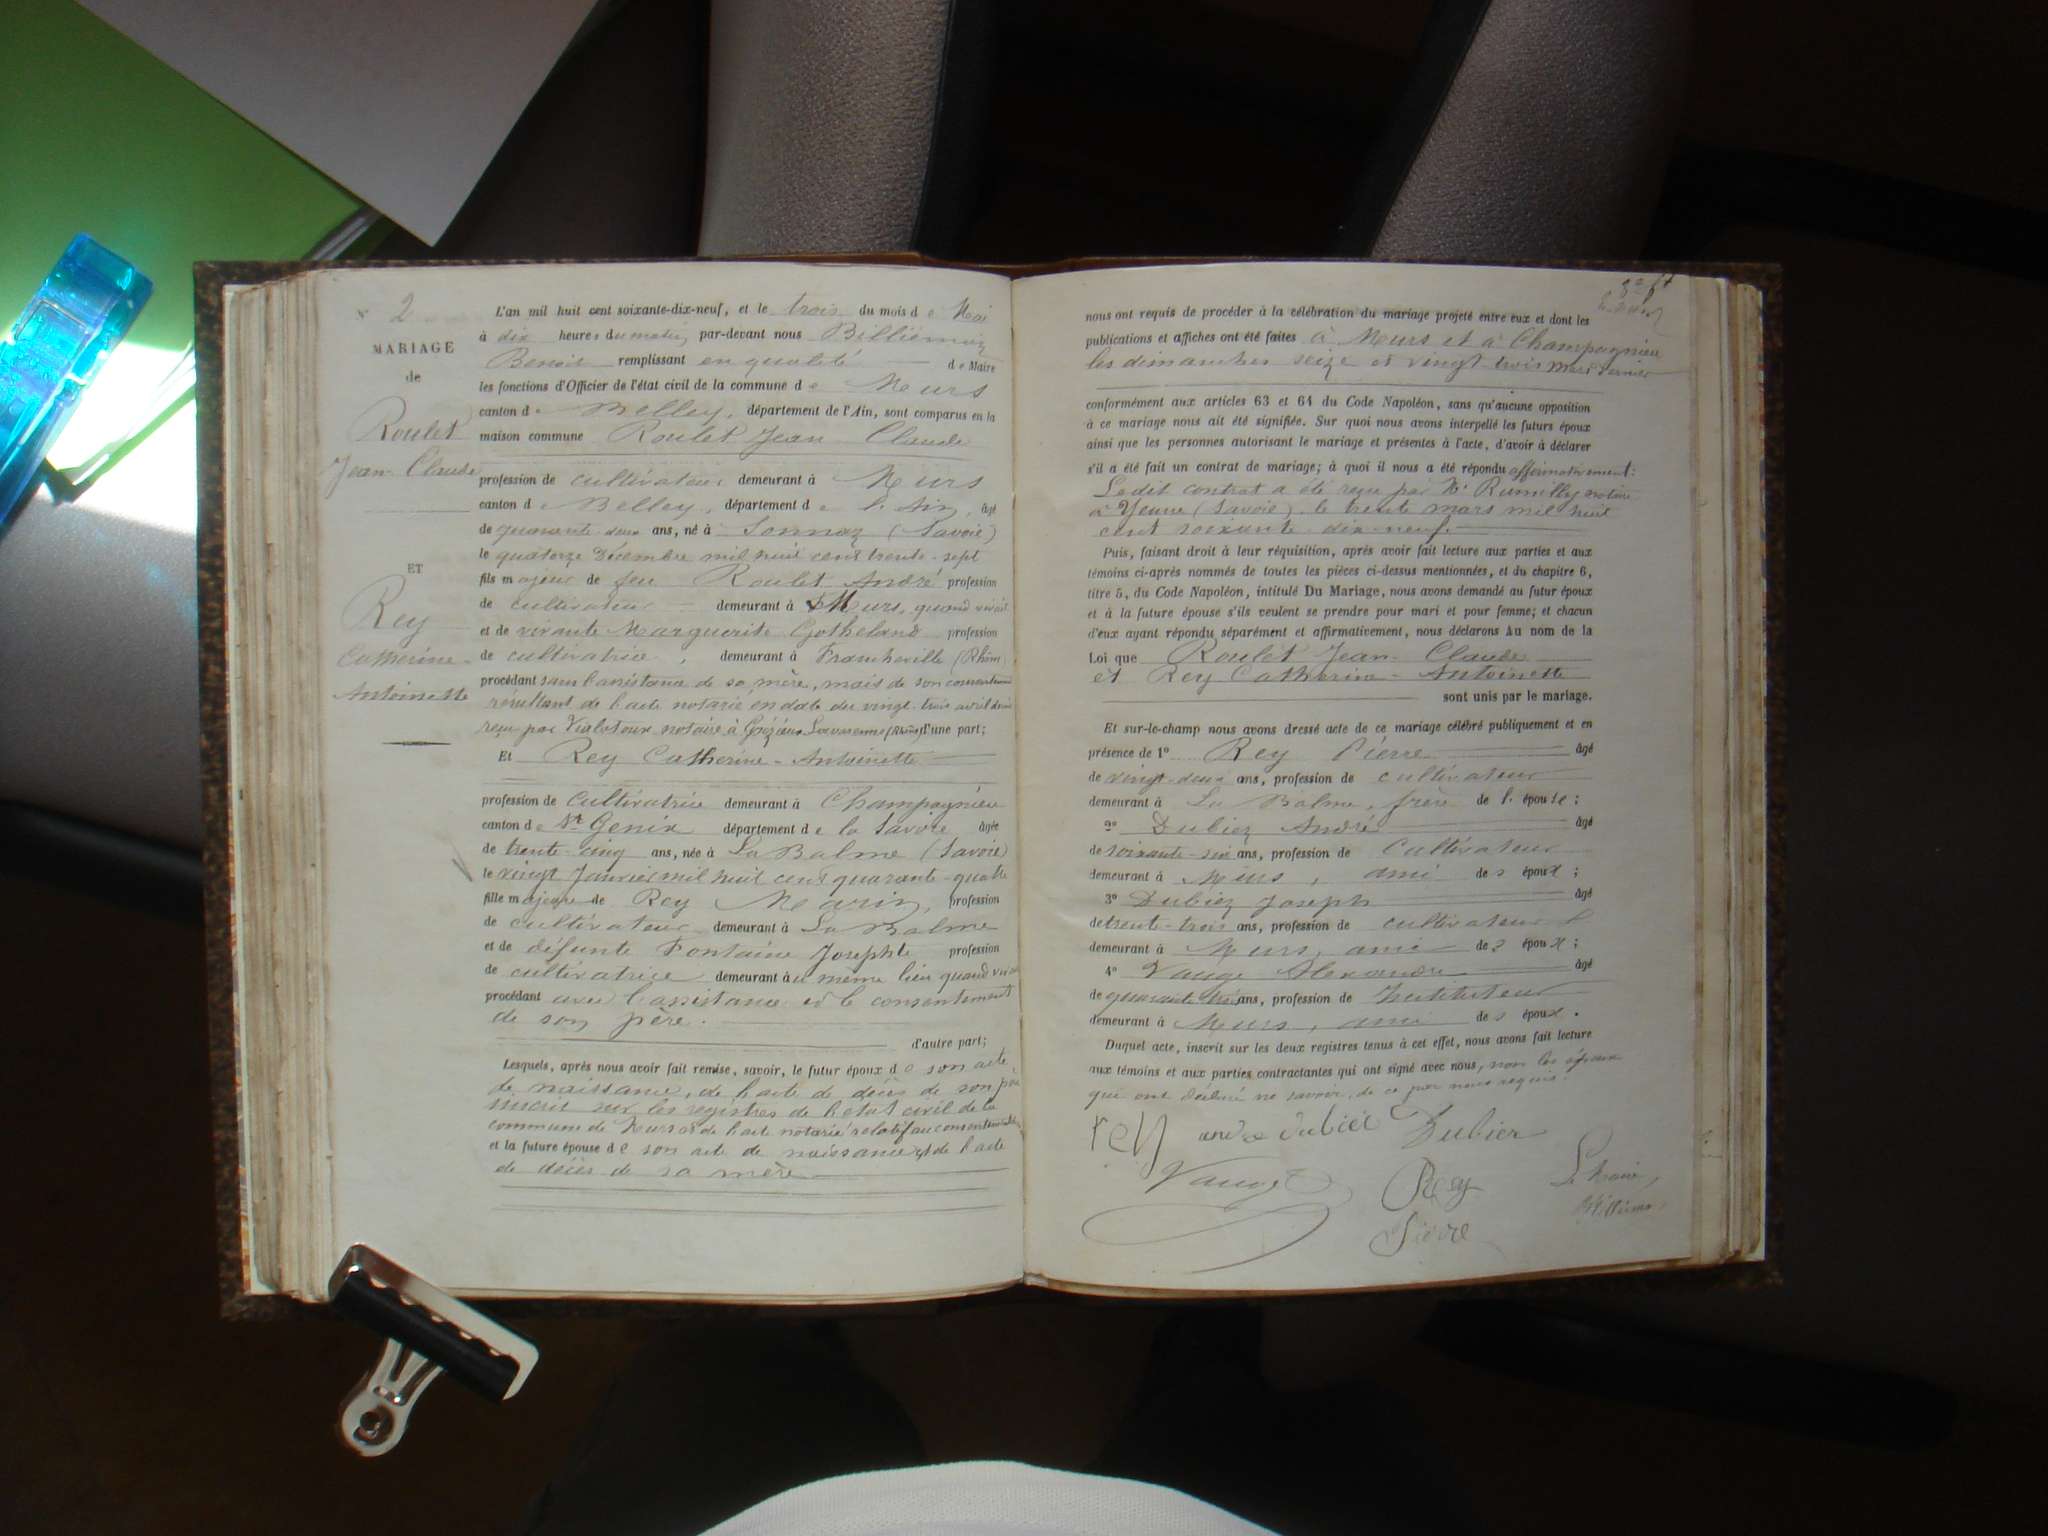 N° 2
MARIAGE
de
Roulet
Jean-Claude
ET
Rey
Catherine-
Antoinette
L'an mil huit cent soixante-dix-neuf, et le trois du mois de Mai
à dix heures du matin, par-devant nous Billiemaz
Benoit remplissant en qualité de Maire
les fonctions d'Officier de l'état civil de la commune de Meurs
canton de Belley, département de l'Ain, sont comparus en la
maison commune Roulet Jean Claude
profession de cultivateur demeurant à Meurs
canton de Belley, département de l'Ain, âgé
de quarante deux ans, né à Sonnaz (Savoie)
le quatorze Décembre mil huit cent trente-sept
fils majeur de feu Roulet André profession
de cultivateur demeurant à Meurs, quand vivait
et de vivante Marguerite Gotheland profession
de cultivatrice, demeurant à Francheville (Rhône)
procédant sans l'assistance de sa mère, mais de son consentement
résultant de l'acte notarié en date du vingt-trois avril dernier
reçu par Vialatoux notaire à Grézieu Lavarenne (Rhône) d'une part;
Et Rey Catherine-Antoinette
profession de cultivatrice demeurant à Champagnieu
canton de St Genix département de la Savoie âgée
de trente-cinq ans, née à La Balme (Savoie)
le vingt Janvier mil huit cent quarante-quatre
fille majeure de Rey Marin, profession
de cultivateur demeurant à La Balme
et de défunte Fontaine Josephte profession
de cultivatrice demeurant au même lieu quand vivait
procédant avec l'assistance et le consentement
de son père.
d'autre part;
Lesquels, après nous avoir fait remise, savoir, le futur époux de son acte
de naissance, de l'acte de décès de son père
inscrit sur les registres de l'état civil de la
commune de Meurs et de l'acte notarié relatif au consentement
et la future épouse de son acte de naissance et de l'acte
de décès de sa mère
nous ont requis de procéder à la célébration du mariage projeté entre eux et dont les
publications et affiches ont été faites à Meurs et à Champagnieu
les dimanches seize et vingt-trois mars dernier
conformément aux articles 63 et 64 du Code Napoléon, sans qu'aucune opposition
à ce mariage nous ait été signifiée. Sur quoi nous avons interpellé les futurs époux
ainsi que les personnes autorisant le mariage et présentes à l'acte, d'avoir à déclarer
s'il a été fait un contrat de mariage; à quoi il nous a été répondu affirmativement:
Ledit contrat a été reçu par Me Rumilly notaire
à Yenne (Savoie), le trente mars mil huit
cent soixante-dix-neuf.
Puis, faisant droit à leur réquisition, après avoir fait lecture aux parties et aux
témoins ci-après nommés de toutes les pièces ci-dessus mentionnées, et du chapitre 6,
titre 5, du Code Napoléon, intitulé Du Mariage, nous avons demandé au futur époux
et à la future épouse s'ils veulent se prendre pour mari et pour femme; et chacun
d'eux ayant répondu séparément et affirmativement, nous déclarons au nom de la
Loi que Roulet Jean-Claude
et Rey Catherine-Antoinette
sont unis par le mariage.
Et sur-le-champ nous avons dressé acte de ce mariage célébré publiquement et en
présence de 1° Rey Pierre âgé
de vingt-deux ans, profession de cultivateur
demeurant à La Balme, frère de l'épouse;
2° Dubiez André âgé
de soixante-six ans, profession de Cultivateur
demeurant à Meurs, ami des époux;
3° Dubiez Joseph âgé
de trente-trois ans, profession de cultivateur
demeurant à Meurs, ami des époux;
4° Vauge Alexandre âgé
de quarante ans, profession de Instituteur
demeurant à Meurs, ami des époux.
Duquel acte, inscrit sur les deux registres tenus à cet effet, nous avons fait lecture
aux témoins et aux parties contractantes qui ont signé avec nous, non les époux
qui ont déclaré ne savoir, de ce par nous requis.
rey andre dubiei Dubier
Vauge Rey Le Maire,
Pierre Billiemaz